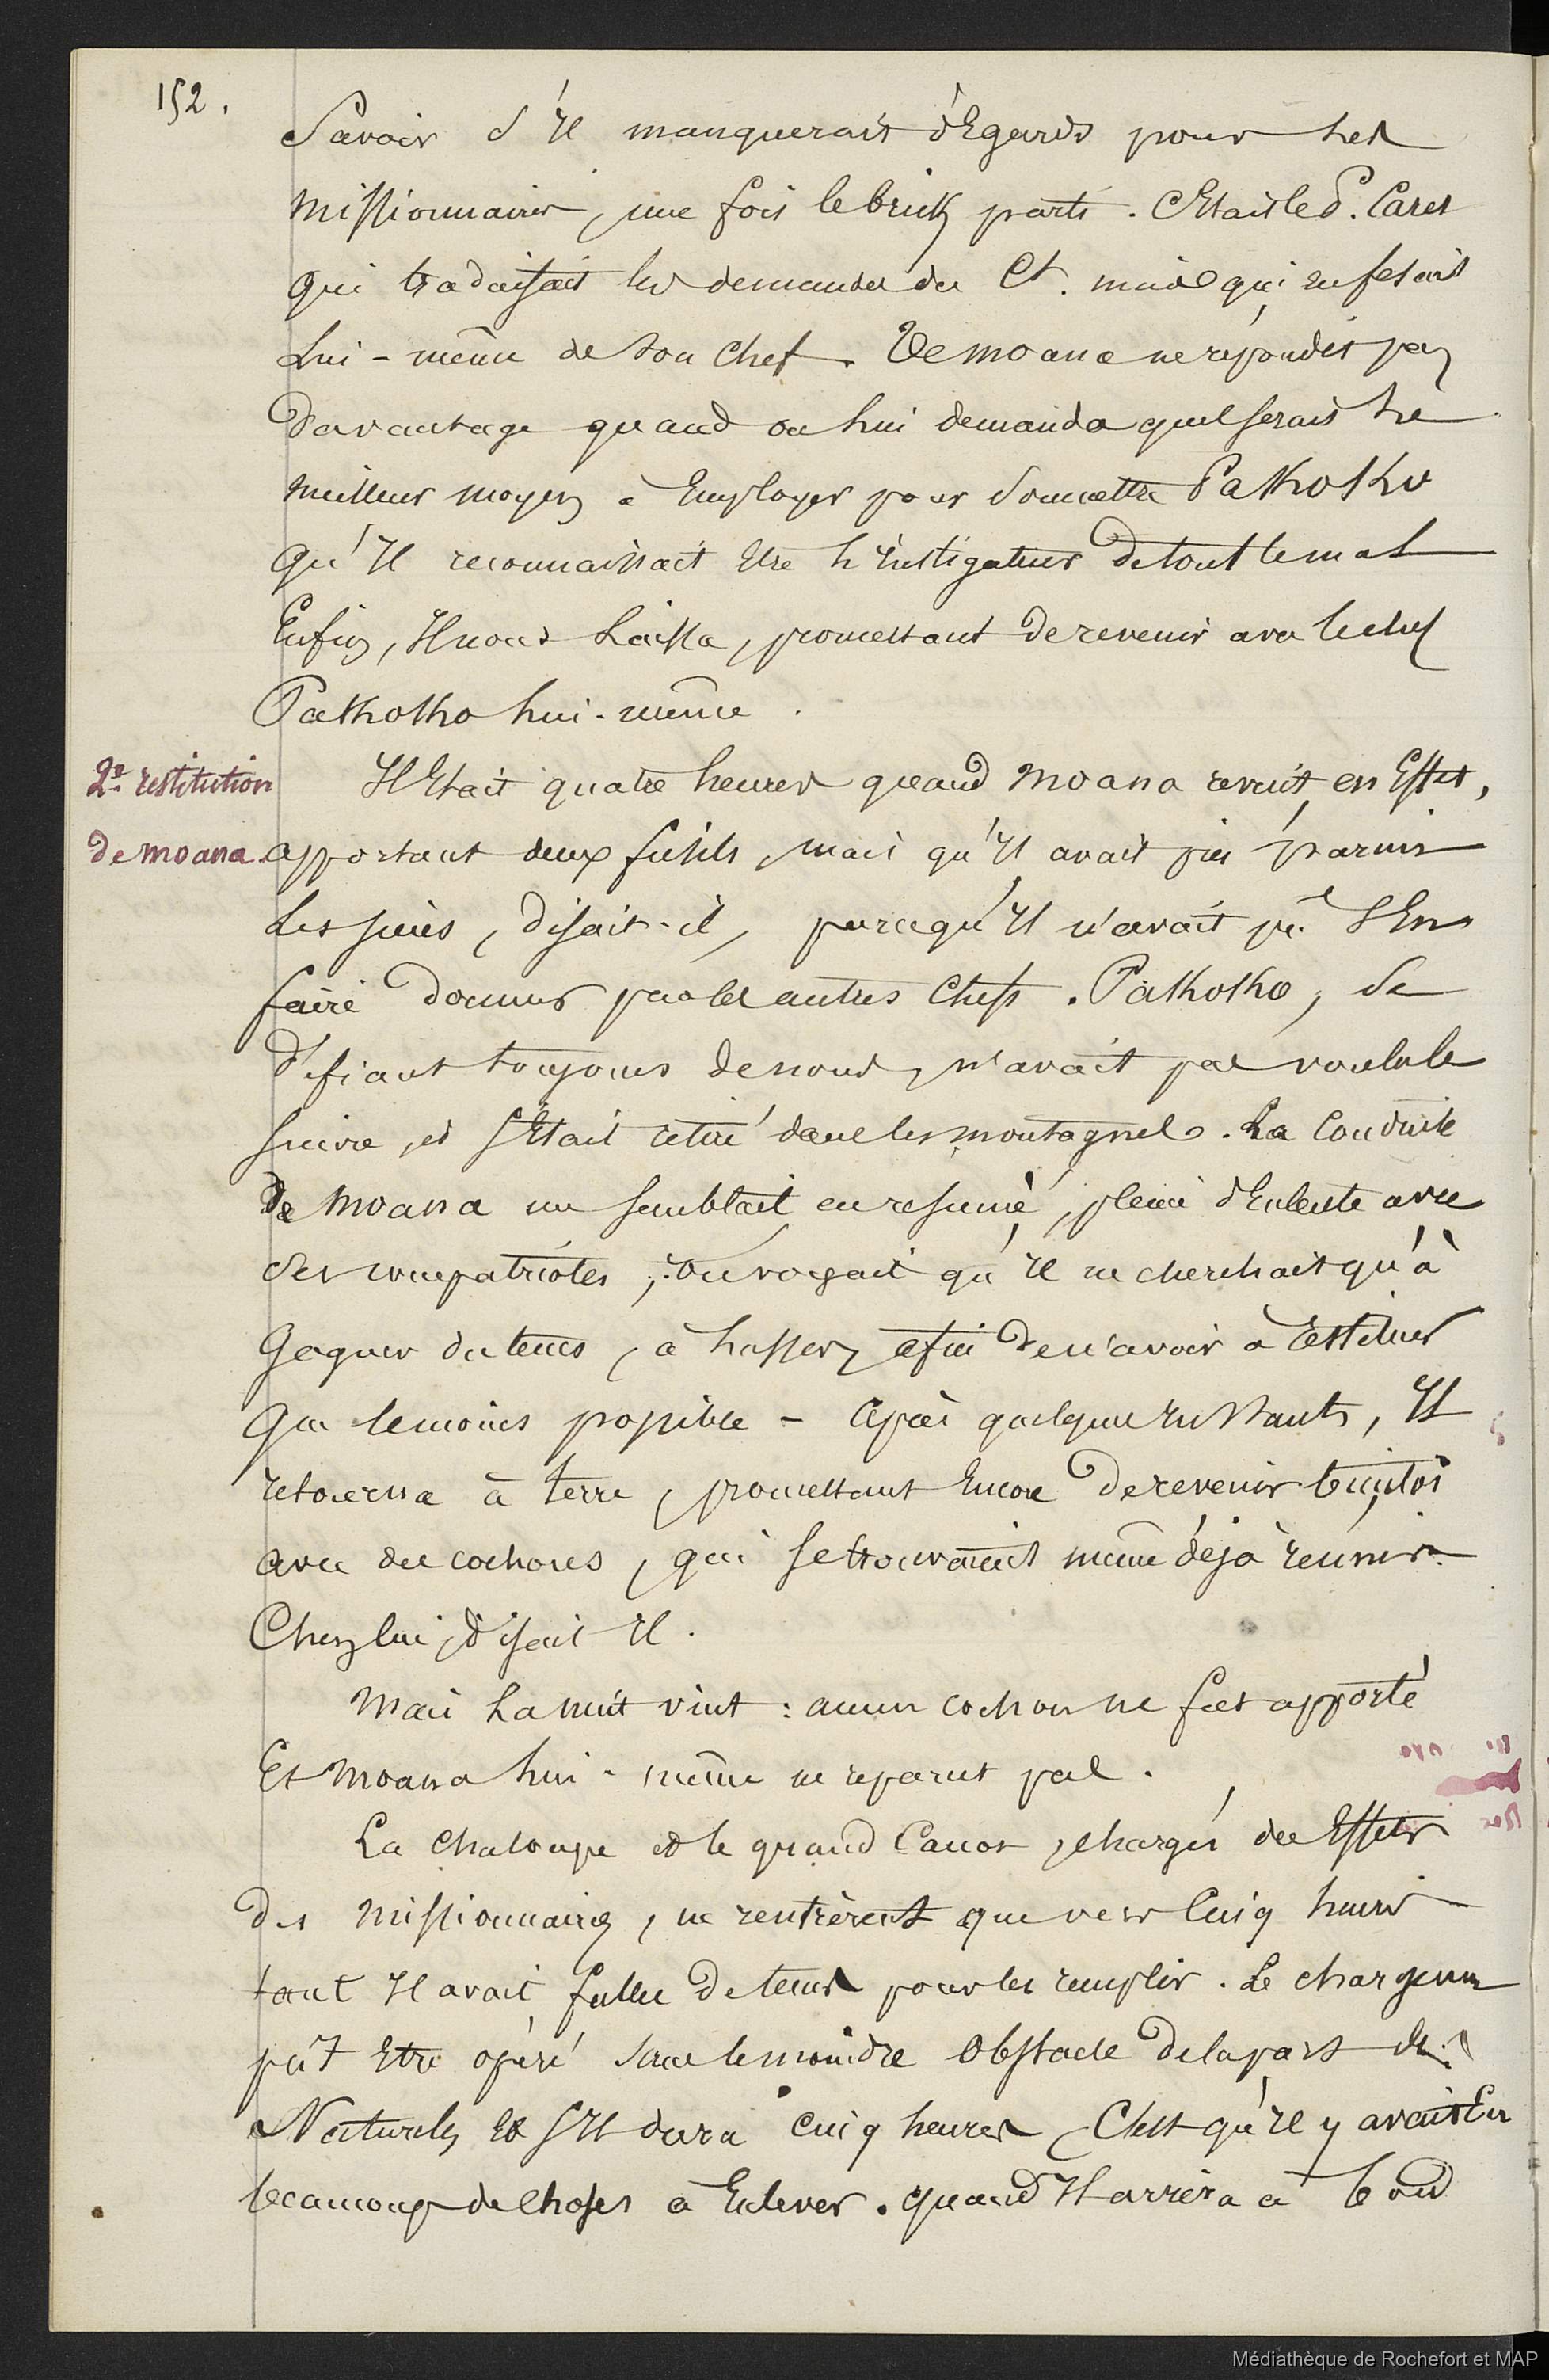 152.
Savoir s'Il manquerait d'Egards pour Les
missionnaires, une fois le brick parti. C'Etait le P. Caret
qui traduisait les demandes du Ct. mais qui en fesait
Lui-même de son Chef. Te moana ne répondit pas
Davantage quand on Lui demanda quel serait Le
meilleur moyen à Employer pour soumettre Pakhokho
qu'Il reconnaissait Etre L'instigateur de tout le mal
Enfin, Il nous Laissa, promettant de revenir avec le chef
Pakhokho Lui-même.
2e. restitution
de moana.
Il Etait quatre heures quand moana revint, en Effet,
apportant deux fusils, mais qu'Il avait pris parmis
Les siens, disait-il, parcequ'Il n'avait pu s'En
faire donner par les autres Chefs. Pakhokho, se
défiant toujours de nous, n'avait pas voulu le
suivre, et s'Etait retiré dans les montagnes. La Conduite
De moana me semblait en résumé, pleine d'Entente avec
ses compatriotes; On voyait qu'Il ne cherchait qu'à
Gagner du tems, à Lasser, afin de n'avoir à restituer
que le moins possible - Après quelques instants, Il
retourna à terre, promettant Encore de revenir bientôt
avec des cochons, qui se trouvaient même déjà réunis
Chez lui, disait Il.
Mais La nuit vint : aucun cochon ne fut apporté
Et moana Lui-même ne reparut pas.
La Chaloupe et le grand Canot, chargés des Effets
des missionnaires, ne rentrèrent que vers Cinq heures
tant Il avait fallu de tems pour les remplir. Le chargement
pût Etre opéré sans le moindre Obstacle de la part des
Naturels, Et s'Il dura cinq heures, C'Est qu'Il y avait En
beaucoup de choses à Enlever. Quand Il arriva à bord